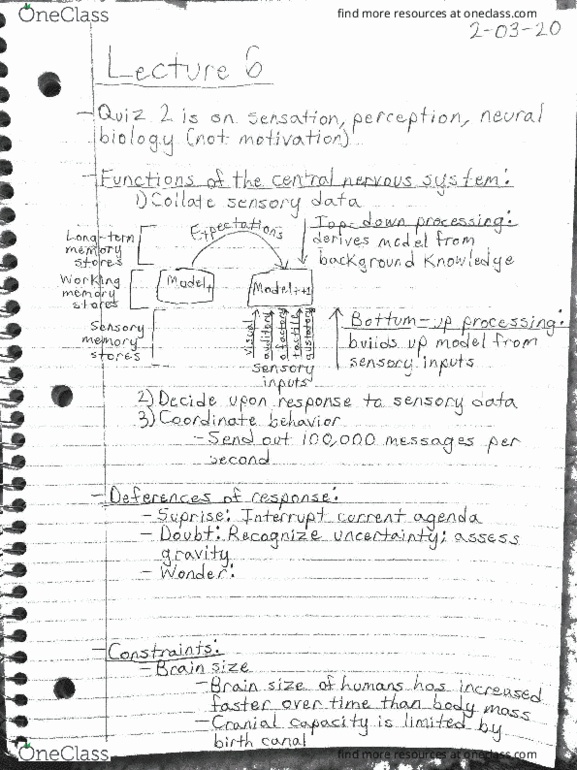 OneClass
find more resources at oneclass.com
2-03-20
Lecture 6
- Quiz 2 is on sensation, perception, neural
biology (not motivation)
- Functions of the central nervous system:
1) Collate sensory data
Long-term
memory
stores
Expectations
Top-down processing:
derives model from
background knowledge
Working
memory
stores
Model t
Model t+1
Sensory
memory
stores
visual
auditory
olfactory
tactile
gustatory
sensory
inputs
Bottum-up processing:
builds up model from
sensory inputs
2) Decide upon response to sensory data
3) Coordinate behavior
- Send out 100,000 messages per
second
- Deferences of response:
- Suprise: Interrupt current agenda
- Doubt: Recognize uncertainty; assess
gravity
- Wonder:
- Constraints:
- Brain size
- Brain size of humans has increased
faster over time than body mass
- Cranial capacity is limited by
birth canal
OneClass
find more resources at oneclass.com